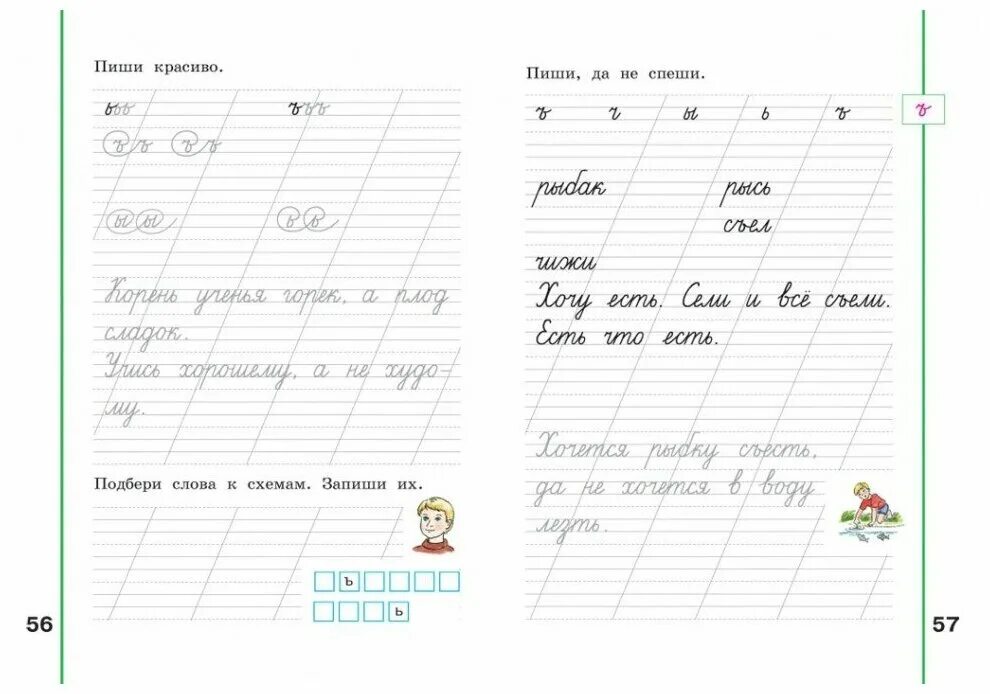 Пиши красиво.
ььь ъъъ
ъъ ъъ
ыы ьь
Корень ученья горек, а плод
сладок.
Учись хорошему, а не худо-
му.
Подбери слова к схемам. Запиши их.
ъ
ь
56
Пиши, да не спеши.
ъ ч ы ь ъ
ъ
рыбак рысь
съел
чижи
Хочу есть. Сели и всё съели.
Есть что есть.
Хочется рыбку съесть,
да не хочется в воду
лезть.
57